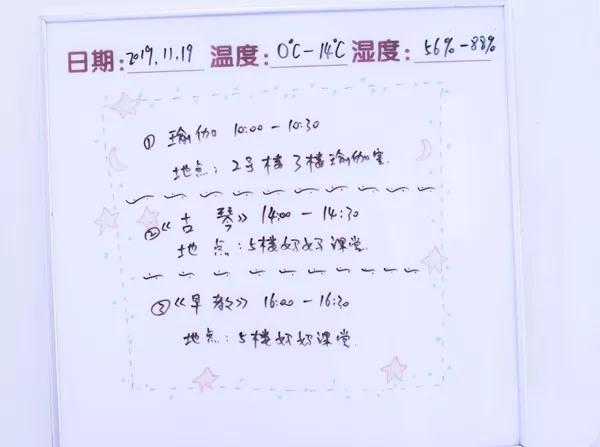 日期:2019.11.19 温度:0℃-14℃ 湿度:56%-88%
① 瑜伽 10:00-10:30
地点:2号楼3楼瑜伽室
②《古琴》14:00-14:30
地点:5楼好好课堂
③《早教》16:00-16:30
地点:5楼好好课堂